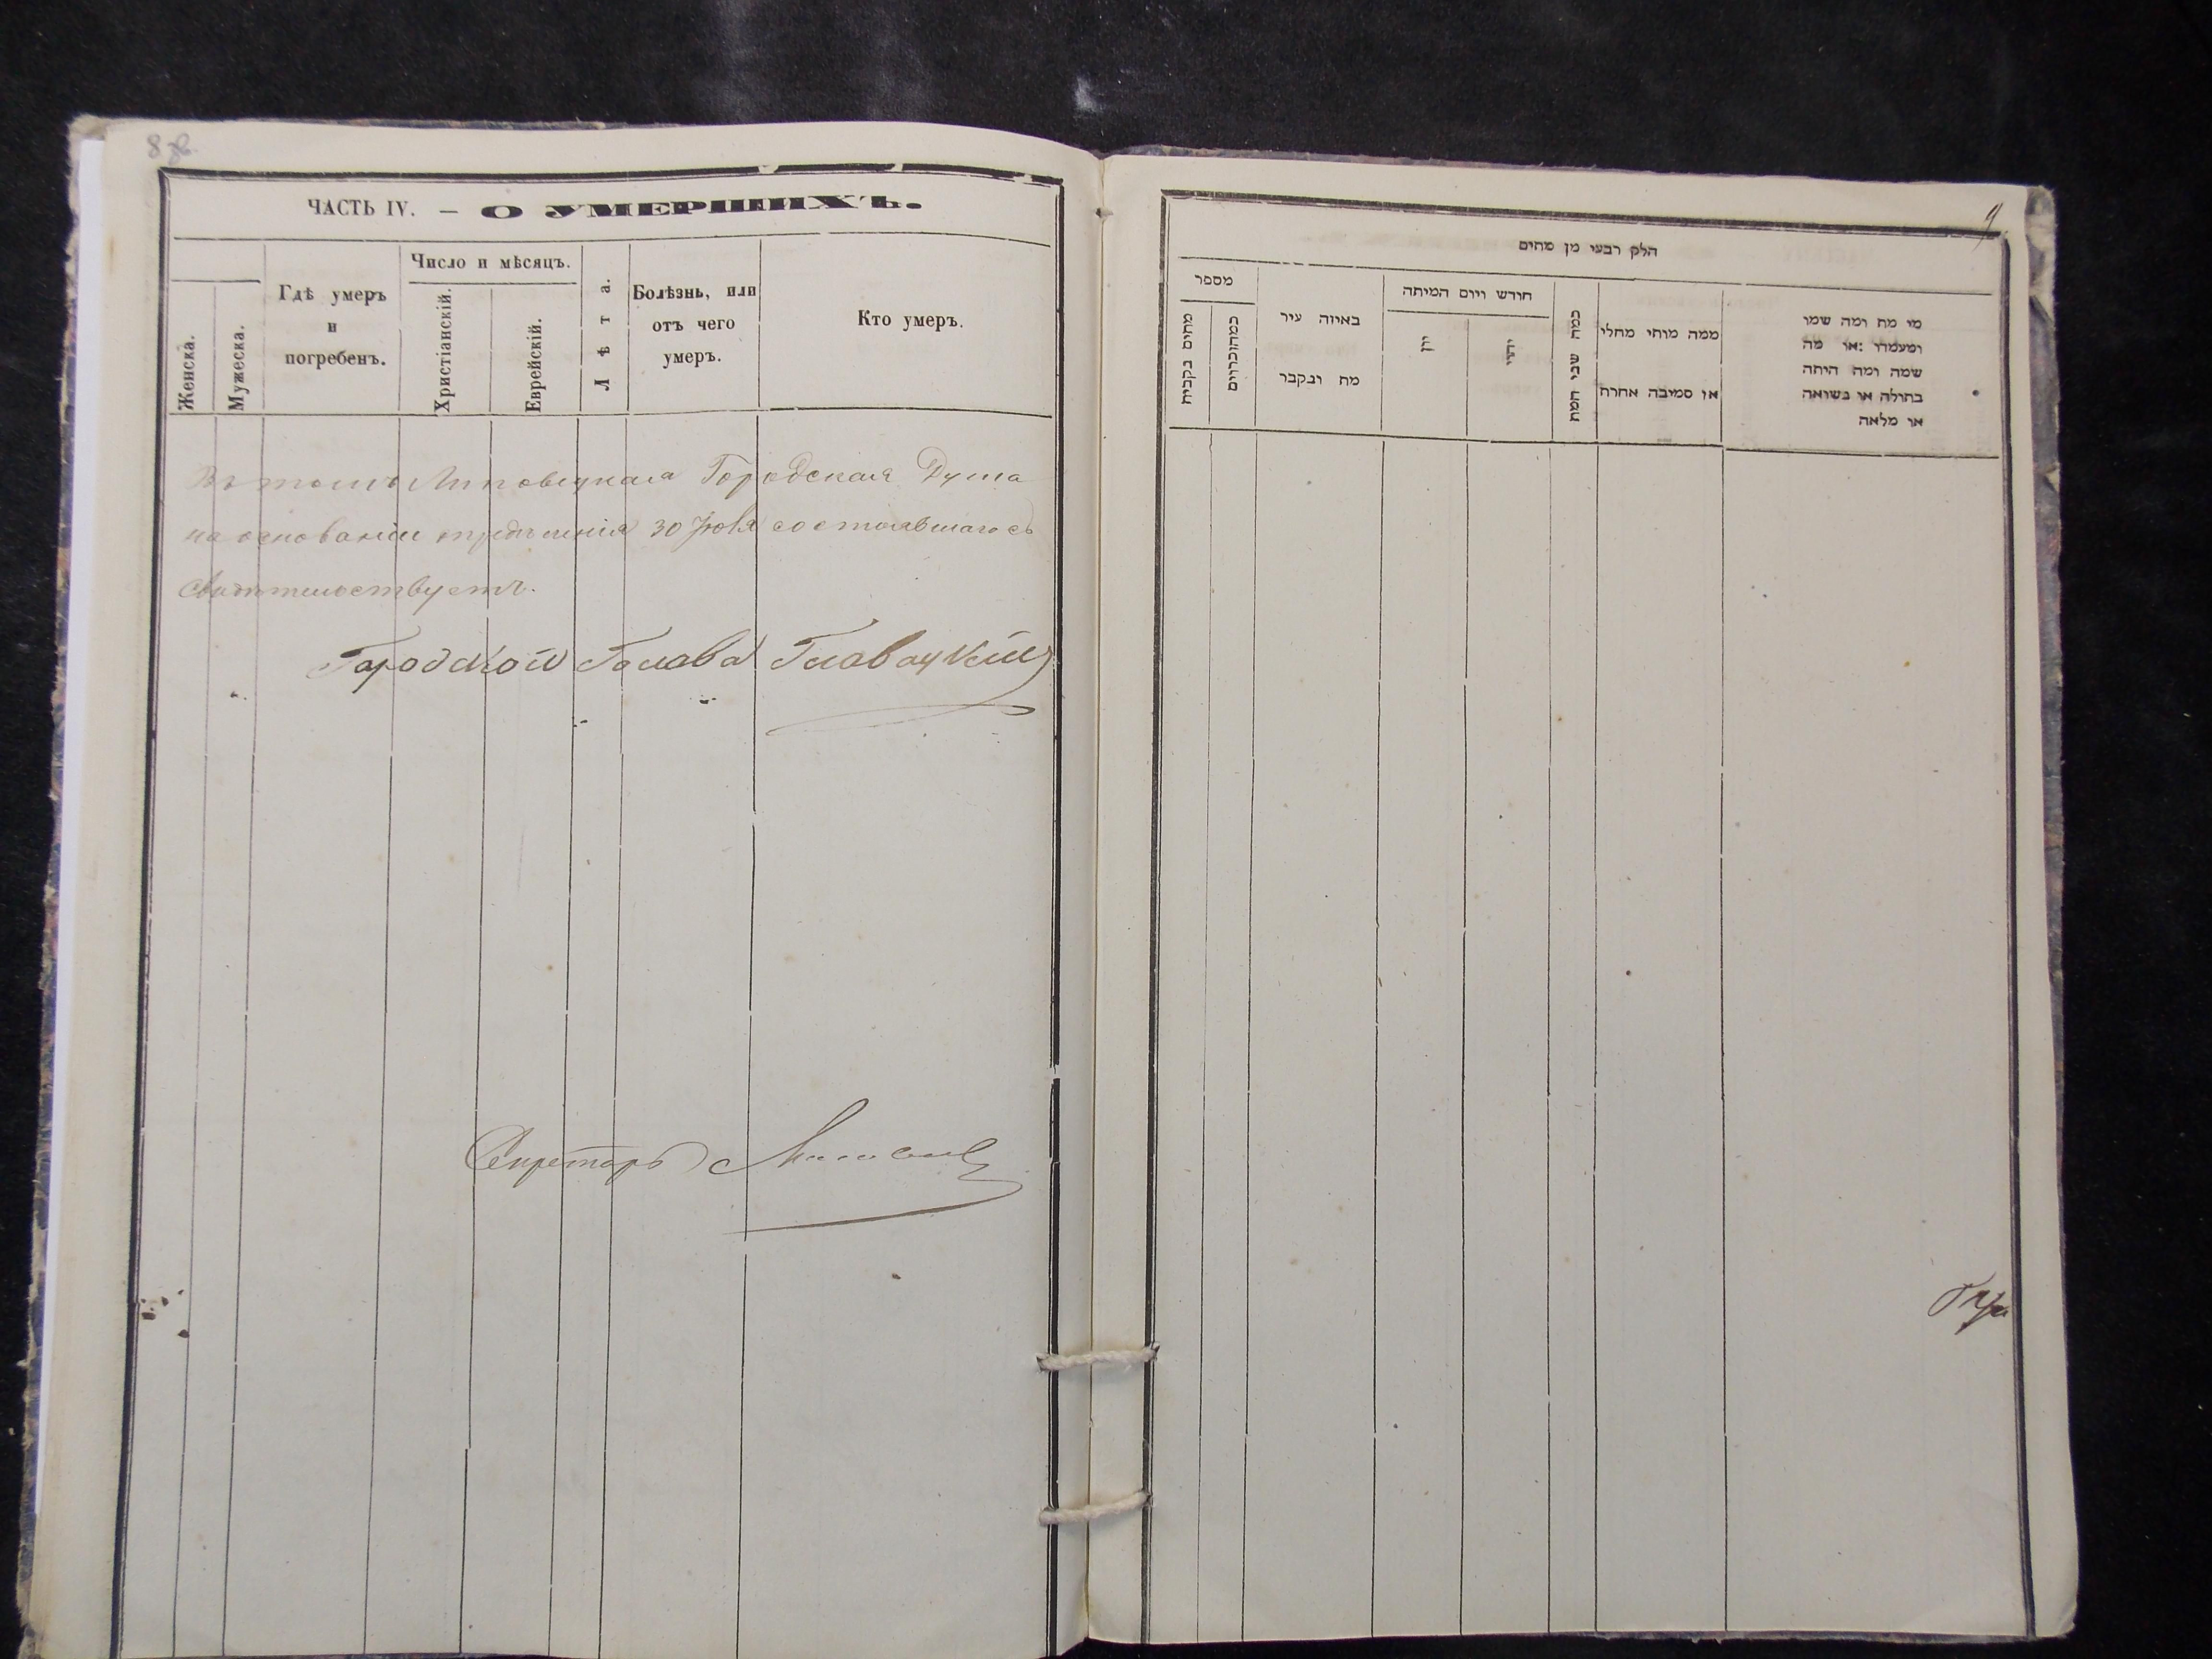 8 об.
ЧАСТЬ IV. — О УМЕРШИХЪ.
Женска.
Мужеска.
Гдѣ умеръ
и
погребенъ.
Число и мѣсяцъ.
Христіанскій.
Еврейскій.
Лѣта.
Болѣзнь, или
отъ чего
умеръ.
Кто умеръ.
Въ томъ Липовецкая Городская Дума
на основаніи 30 Іюля состоявшагося
свидѣтельствуетъ.
Городской Голова Главацкій
Секретарь
9
חלק רבעי מן מתים
מספר
מתים נקבות
באיזה עיר
מת ונקבר
חודש ויום המיתה
יון
יודי
כמה שני המת
ממה מותי מחלי
או סמיבה אחרת
מי מת ומה שמו
ומעמדו :או מה
שמה ומה היתה
בתולה או נשואה
או מלאה